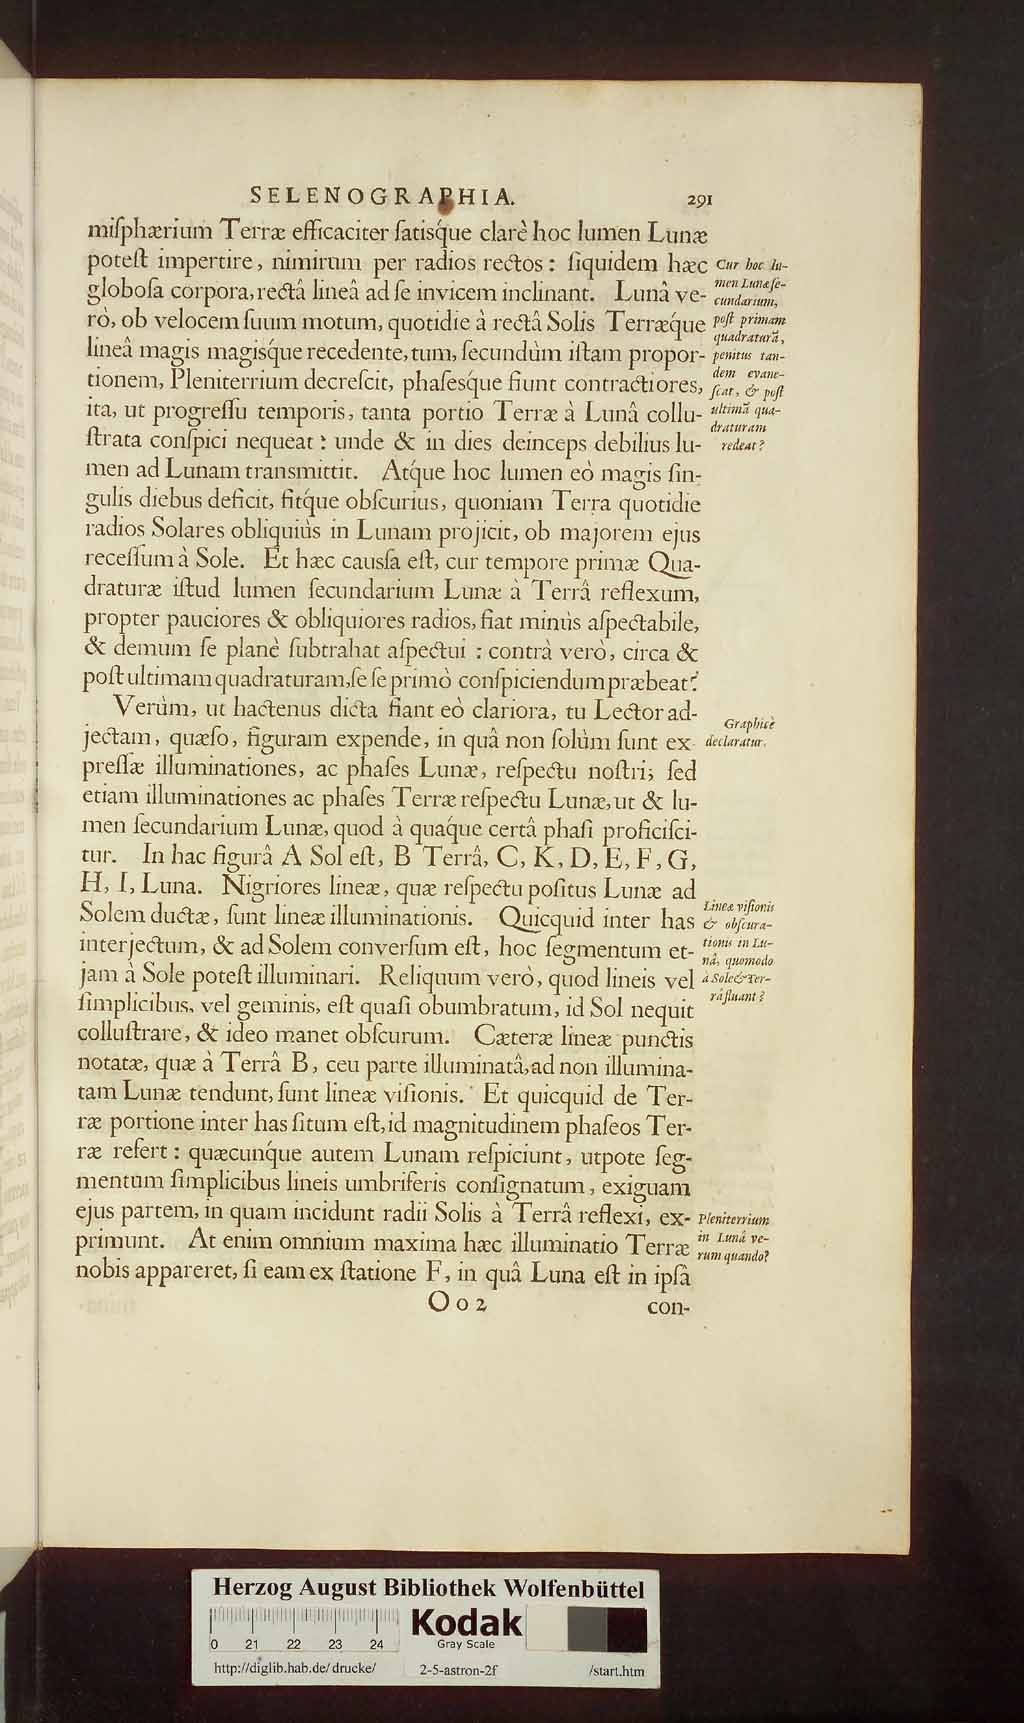 SELENOGRAPHIA. 291
miſphærium Terræ efficaciter ſatisq́ue clarè hoc lumen Lunæ
poteſt impertire, nimirum per radios rectos: ſiquidem hæc
globoſa corpora, rectâ lineâ ad ſe invicem inclinant. Lunâ ve-
rò, ob velocem ſuum motum, quotidie à rectâ Solis Terræq́ue
lineâ magis magisq́ue recedente, tum, ſecundùm iſtam propor-
tionem, Pleniterrium decreſcit, phaſesq́ue fiunt contractiores,
ita, ut progreſſu temporis, tanta portio Terræ à Lunâ collu-
ſtrata conſpici nequeat: unde & in dies deinceps debilius lu-
men ad Lunam transmittit. Atq́ue hoc lumen eò magis ſin-
gulis diebus deficit, fitq́ue obſcurius, quoniam Terra quotidie
radios Solares obliquiùs in Lunam projicit, ob majorem ejus
receſſum à Sole. Et hæc cauſa eſt, cur tempore primæ Qua-
draturæ iſtud lumen ſecundarium Lunæ à Terrâ reflexum,
propter pauciores & obliquiores radios, fiat minùs aſpectabile,
& demum ſe planè ſubtrahat aſpectui: contrà verò, circa &
poſt ultimam quadraturam, ſe ſe primò conſpiciendum præbeat?
Cur hoc lu-
men Lunæ ſe-
cundarium,
poſt primam
quadraturã,
penitus tan-
dem evane-
ſcat, & poſt
ultimã qua-
draturam
redeat?
Verùm, ut hactenus dicta fiant eò clariora, tu Lector ad-
jectam, quæſo, figuram expende, in quâ non ſolùm ſunt ex-
preſſæ illuminationes, ac phaſes Lunæ, reſpectu noſtri; ſed
etiam illuminationes ac phaſes Terræ reſpectu Lunæ, ut & lu-
men ſecundarium Lunæ, quod à quaq́ue certâ phaſi proficiſci-
tur. In hac figurâ A Sol eſt, B Terrâ, C, K, D, E, F, G,
H, I, Luna. Nigriores lineæ, quæ reſpectu poſitus Lunæ ad
Solem ductæ, ſunt lineæ illuminationis. Quicquid inter has
interjectum, & ad Solem converſum eſt, hoc ſegmentum et-
jam à Sole poteſt illuminari. Reliquum verò, quod lineis vel
ſimplicibus, vel geminis, eſt quaſi obumbratum, id Sol nequit
colluſtrare, & ideo manet obſcurum. Cæteræ lineæ punctis
notatæ, quæ à Terrâ B, ceu parte illuminatâ, ad non illumina-
tam Lunæ tendunt, ſunt lineæ viſionis. Et quicquid de Ter-
ræ portione inter has ſitum eſt, id magnitudinem phaſeos Ter-
ræ refert: quæcunq́ue autem Lunam reſpiciunt, utpote ſeg-
mentum ſimplicibus lineis umbriferis conſignatum, exiguam
ejus partem, in quam incidunt radii Solis à Terrâ reflexi, ex-
primunt. At enim omnium maxima hæc illuminatio Terræ
nobis appareret, ſi eam ex ſtatione F, in quâ Luna eſt in ipſâ
Graphicè
declaratur.
Lineæ viſionis
& obſcura-
tionis in Lu-
nâ, quomodo
à Sole & Ter-
râ fluant?
Pleniterrium
in Lunâ ve-
rum quando?
Ooo 2 con-
Herzog August Bibliothek Wolfenbüttel
0 21 22 23 24
Kodak
Gray Scale
http://diglib.hab.de/drucke/ 2-5-astron-2f /start.htm